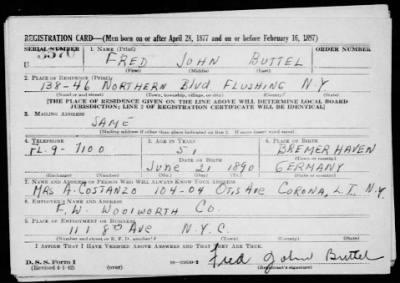 REGISTRATION CARD—(Men born on or after April 28, 1877 and on or before February 16, 1897)
SERIAL NUMBER 1. NAME (Print) ORDER NUMBER
U FRED JOHN BUTTEL
(First) (Middle) (Last)
2. PLACE OF RESIDENCE (Print)
138-46 NORTHERN Blvd FLUSHING N Y
(Number and street) (Town, township, village, or city) (County) (State)
[THE PLACE OF RESIDENCE GIVEN ON THE LINE ABOVE WILL DETERMINE LOCAL BOARD
JURISDICTION; LINE 2 OF REGISTRATION CERTIFICATE WILL BE IDENTICAL]
3. MAILING ADDRESS
SAME
[Mailing address if other than place indicated on line 2. If same insert word same]
4. TELEPHONE 5. AGE IN YEARS 6. PLACE OF BIRTH
FL. 9-7100 51 BREMERHAVEN
DATE OF BIRTH
June 21 1890 GERMANY
(Exchange) (Number) (Mo.) (Day) (Yr.) (State or country)
7. NAME AND ADDRESS OF PERSON WHO WILL ALWAYS KNOW YOUR ADDRESS
MRS A. COSTANZO 104-04 OTIS AVE CORONA, L.I. N.Y.
8. EMPLOYER'S NAME AND ADDRESS
F. W. WOOLWORTH CO.
9. PLACE OF EMPLOYMENT OR BUSINESS
111 8th AVE N.Y.C.
(Number and street or R. F. D. number) (Town) (County) (State)
I AFFIRM THAT I HAVE VERIFIED ABOVE ANSWERS AND THAT THEY ARE TRUE.
D. S. S. Form 1
(Revised 4-1-42)
Fred John Buttel